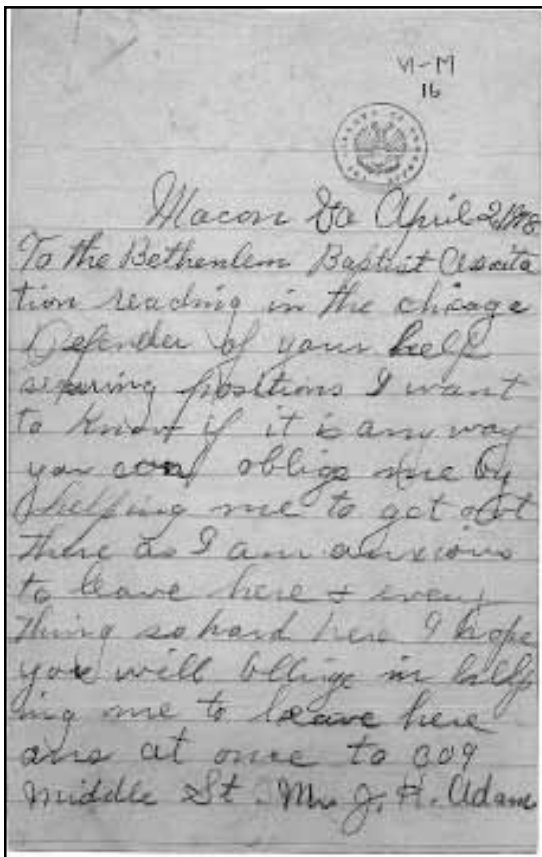 VI-M
16
Macon Ga April 2, 1918
To the Bethenlem Baptist Assoita
tion reading in the chicage
Defender of your help
securing positions I want
to know if it is any way
you can oblige me by
helping me to get out
there as I am anxious
to leave here & every
thing so hard here I hope
you will oblige in help
ing me to leave here
ans at once to 309
Middle St. Mrs J. H. Adams